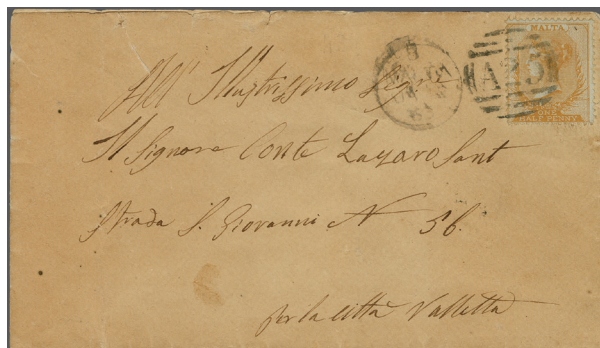 MALTA
A25
HALF PENNY
All' Illustrissimo
Il Signore Conte Lazaro Sant
Strada S. Giovanni N 56.
per la città Valletta